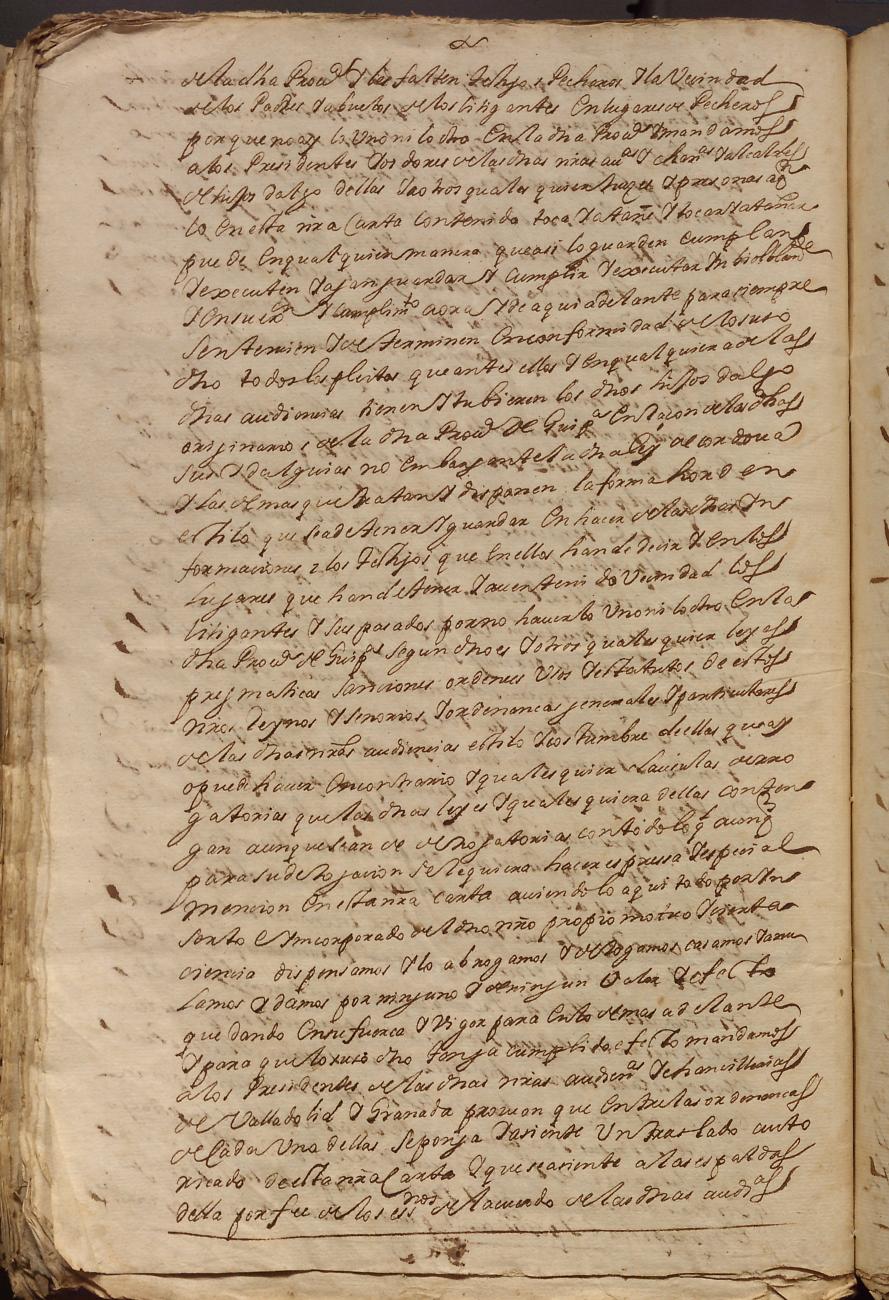 de la dha Prouª Y les falten testigos Pecheros Y la Vecindad
de los Padres Y abuelos de los litigantes En lugares de Pecheros
porque no ay lo Uno ni lo otro En la dha Prouª Y mandamos
a los Presidentes Y oydores de las dhas nras audas Y chanas Y alcaldes
de hijos dalgo dellas Y a otros quales quier Juezes Y personas a qn
lo En esta nra Carta contenido toca Y atañe Y tocar Y atañer
puede En qual quier manera que asi lo guarden cumplan
Y executen Y agan guardar Y cumplir Y executar
Y en su Y cumplimto aora Y de aqui adelante para siempre
sentencien Y determinen En conformidad de lo suso
dho todos los pleitos que ante ellos Y En qual quiera de las
dhas audiencias tienen Y tubieren los dhos hijos dalgo
originarios de la dha Prouª de Guipª En raçon de las dhas
sus Ydalguias no Embargante la dha ley de cordoua
Y las demas que tratan Y disponen la forma horden
estilo que se a de tener Y guardar En hacer de las dhas In
formaciones Y los testigos que En ellas han de decir Y En los
lugares que han de tener Y auer tenido Vecindad los
litigantes Y sus pasados por no hauer lo Uno ni lo otro En la
dha Prouª de Guipª segun dho es Y otros quales quier leyes
pregmaticas sanciones ordenes Usos Y estatutos de estos
nros Reynos Y señorios Y ordenanças jenerales Y particulares
de las dhas nras audiencias estilo Y costumbre de ellas que ay
o puede hauer En contrario Y quales quier clausulas derro
gatorias que las dhas leyes Y quales quiera dellas conten
gan aunque sean de derogatorias con todo lo q aunq
para su derogacion se requiera hacer espressa Y especial
mencion En esta nra carta auiendolo aqui todo por In
serto e Yncorporado del dho nro propio motuo Y cierta
ciencia dispensamos Y lo abrogamos Y derogamos casamos Y anu
lamos Y damos por ninguno Y de ningun Valor Y efecto
quedando En su fuerca Y Vigor para En lo demas adelante
Y para que lo suso dho tenga cumplido efecto mandamos
a los Presidentes de las dhas nras audienas Y chancillerias
de Valladolid Y Granada prouean que Entre las ordenancas
de Cada Una dellas se ponga Y asiente Un traslado auto
ricado de esta nra Carta Y que se asiente a las espaldas
della por fee de los essnos del acuerdo de las dhas audas